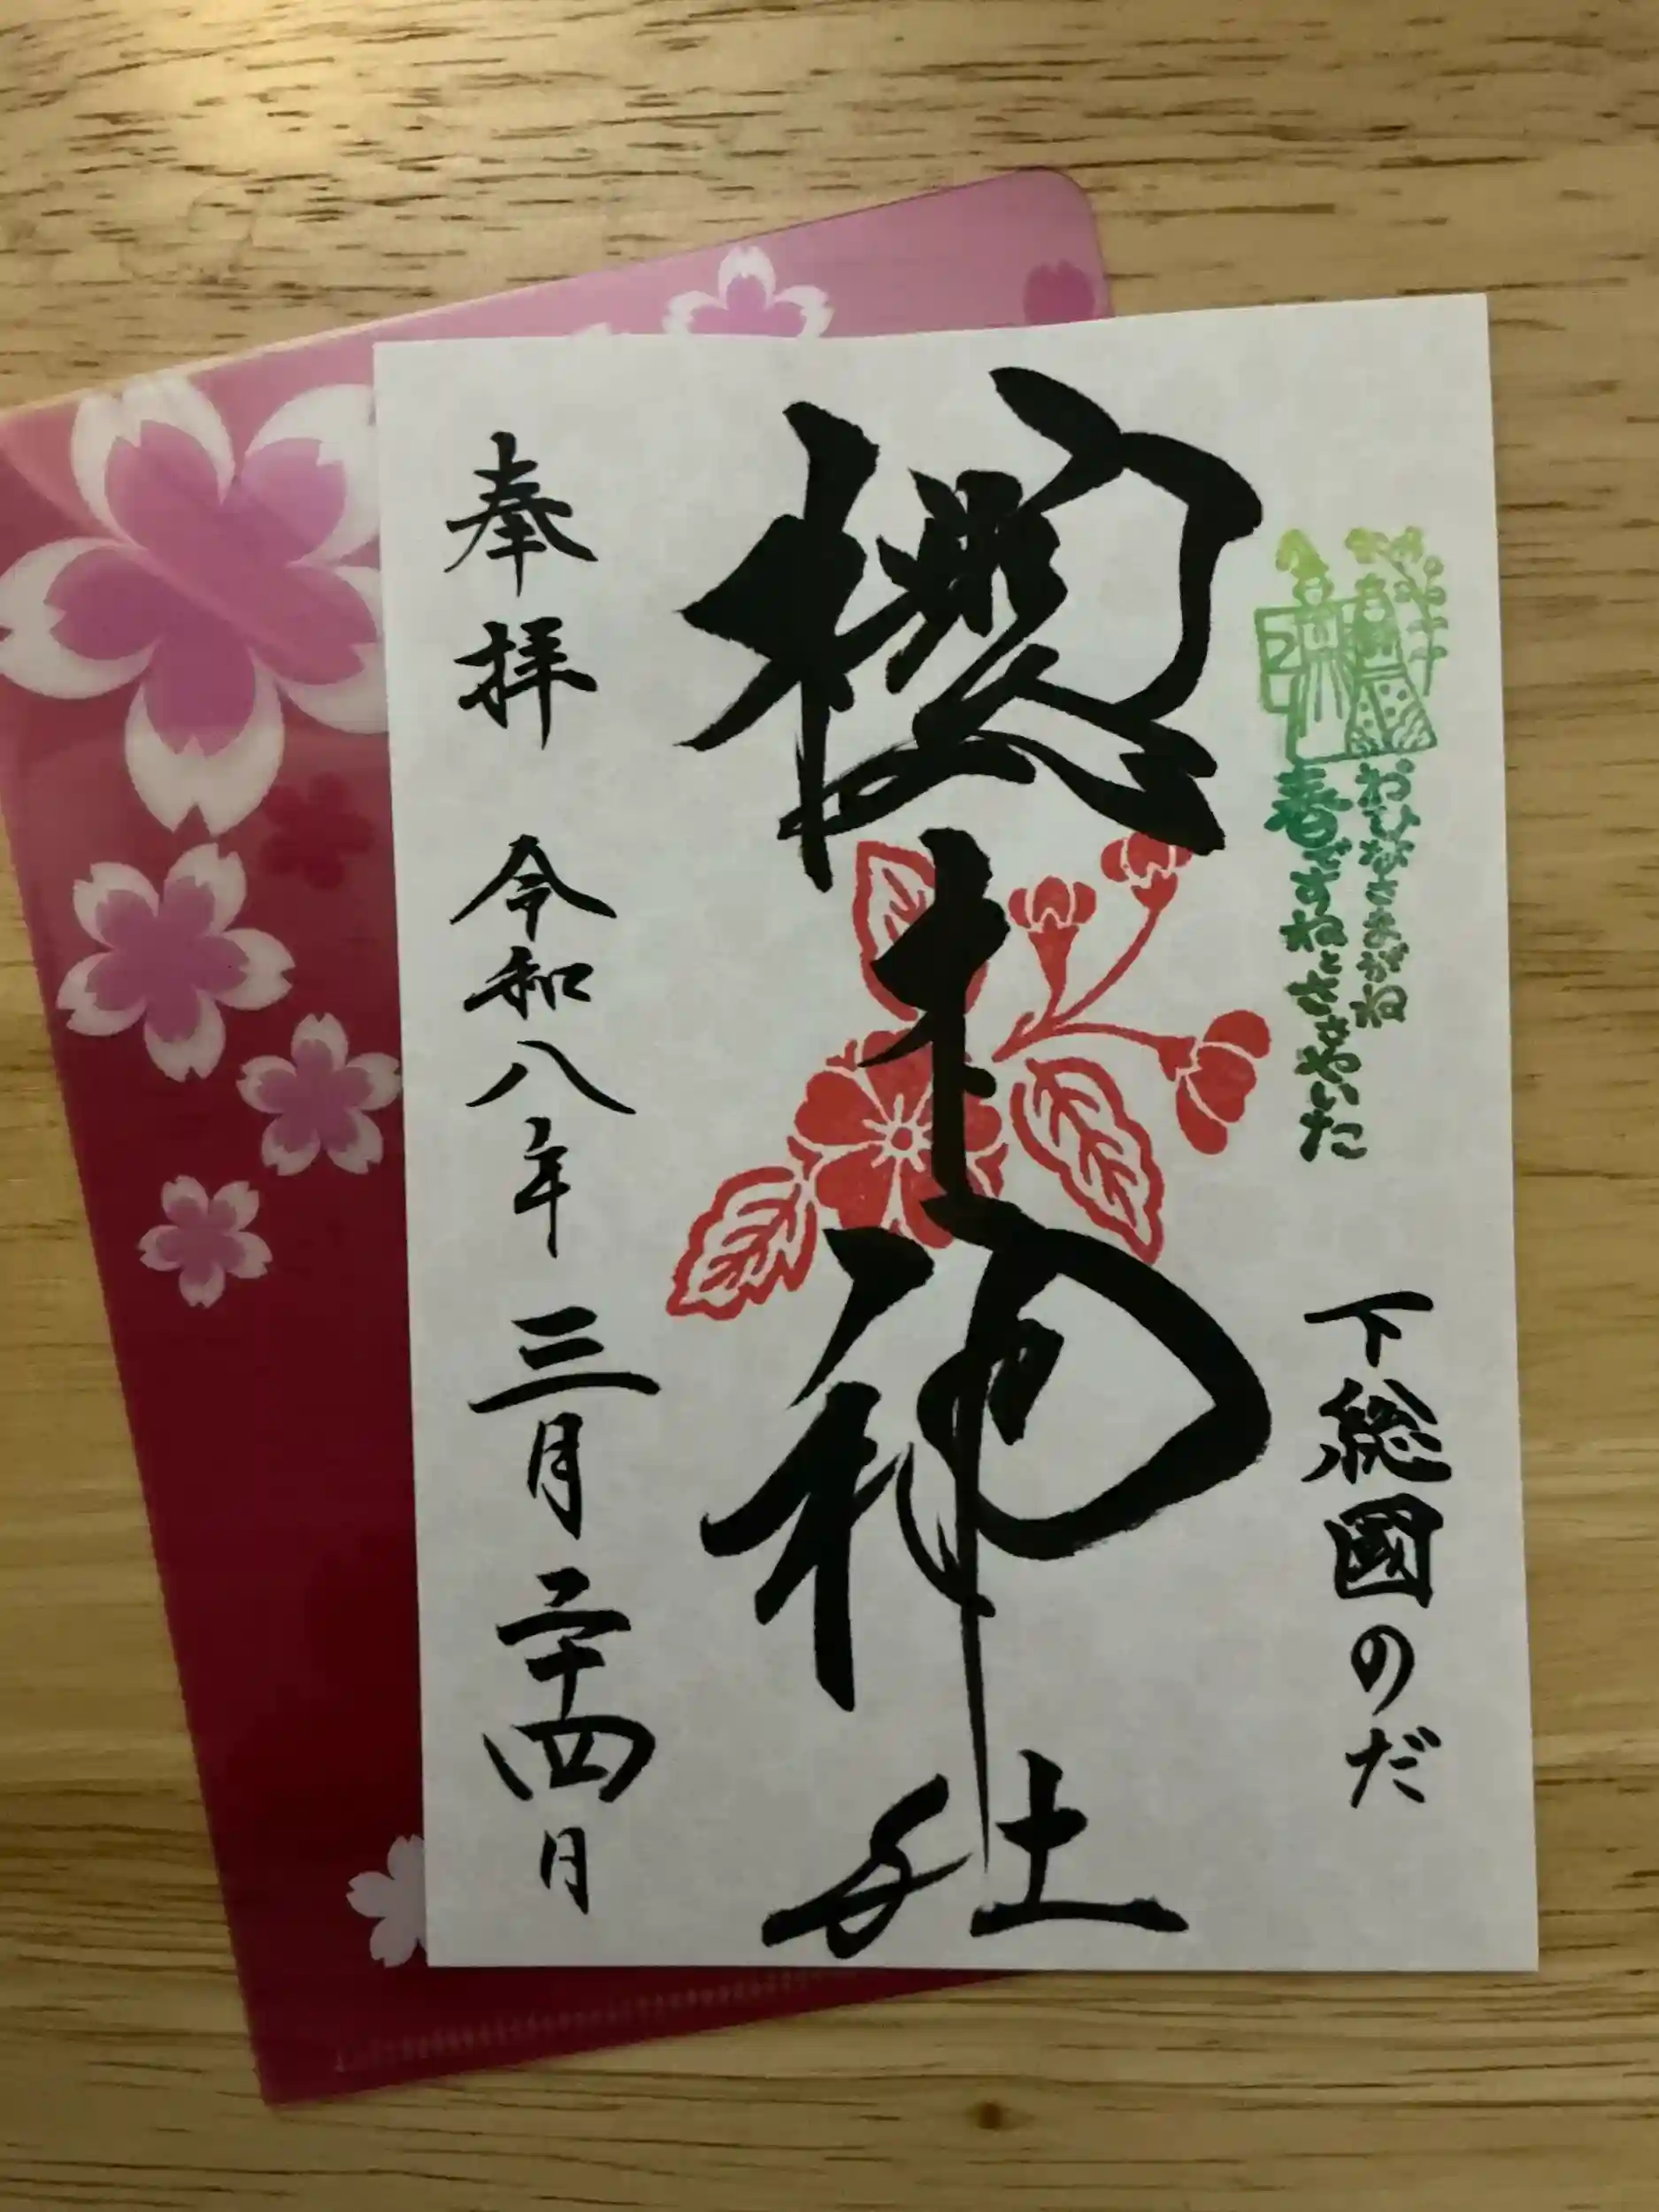 おひなさまがね
春ですねとささやいた
下総國のだ
櫻木神社
奉拝 令和八年 三月二十四日